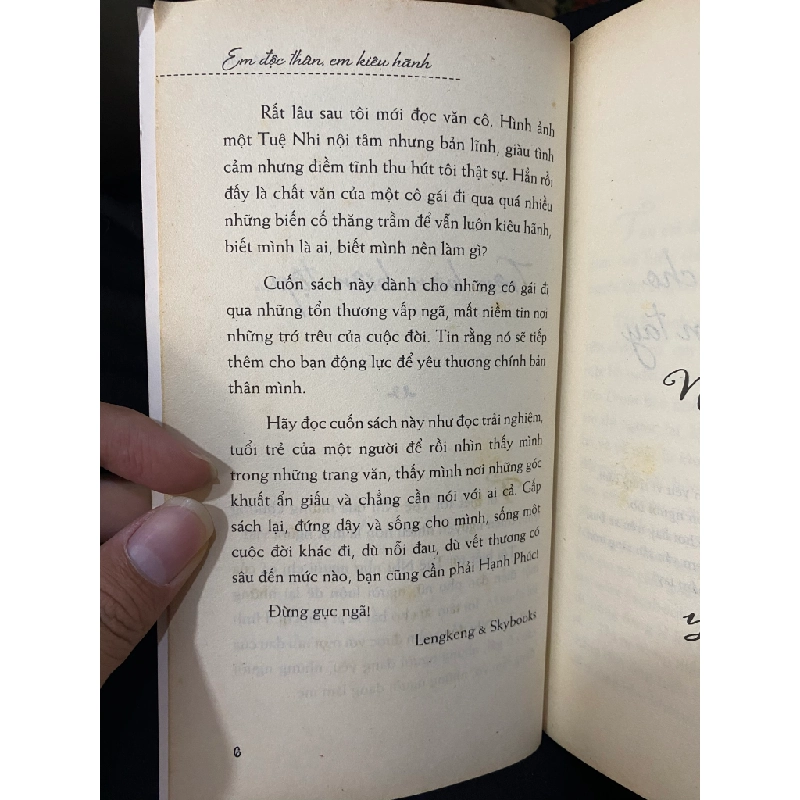 Em độc thân, em kiêu hãnh
Rất lâu sau tôi mới đọc văn cô. Hình ảnh
một Tuệ Nhi nội tâm nhưng bản lĩnh, giàu tình
cảm nhưng điềm tĩnh thu hút tôi thật sự. Hẳn rồi
đấy là chất văn của một cô gái đi qua quá nhiều
những biến cố thăng trầm để vẫn luôn kiêu hãnh,
biết mình là ai, biết mình nên làm gì?
Cuốn sách này dành cho những cô gái đi
qua những tổn thương vấp ngã, mất niềm tin nơi
những trớ trêu của cuộc đời. Tin rằng nó sẽ tiếp
thêm cho bạn động lực để yêu thương chính bản
thân mình.
Hãy đọc cuốn sách này như đọc trải nghiệm,
tuổi trẻ của một người để rồi nhìn thấy mình
trong những trang văn, thấy mình nơi những góc
khuất ẩn giấu và chẳng cần nói với ai cả. Gấp
sách lại, đứng dậy và sống cho mình, sống một
cuộc đời khác đi, dù nỗi đau, dù vết thương có
sâu đến mức nào, bạn cũng cần phải Hạnh Phúc!
Đừng gục ngã!
Lengkeng & Skybooks
6